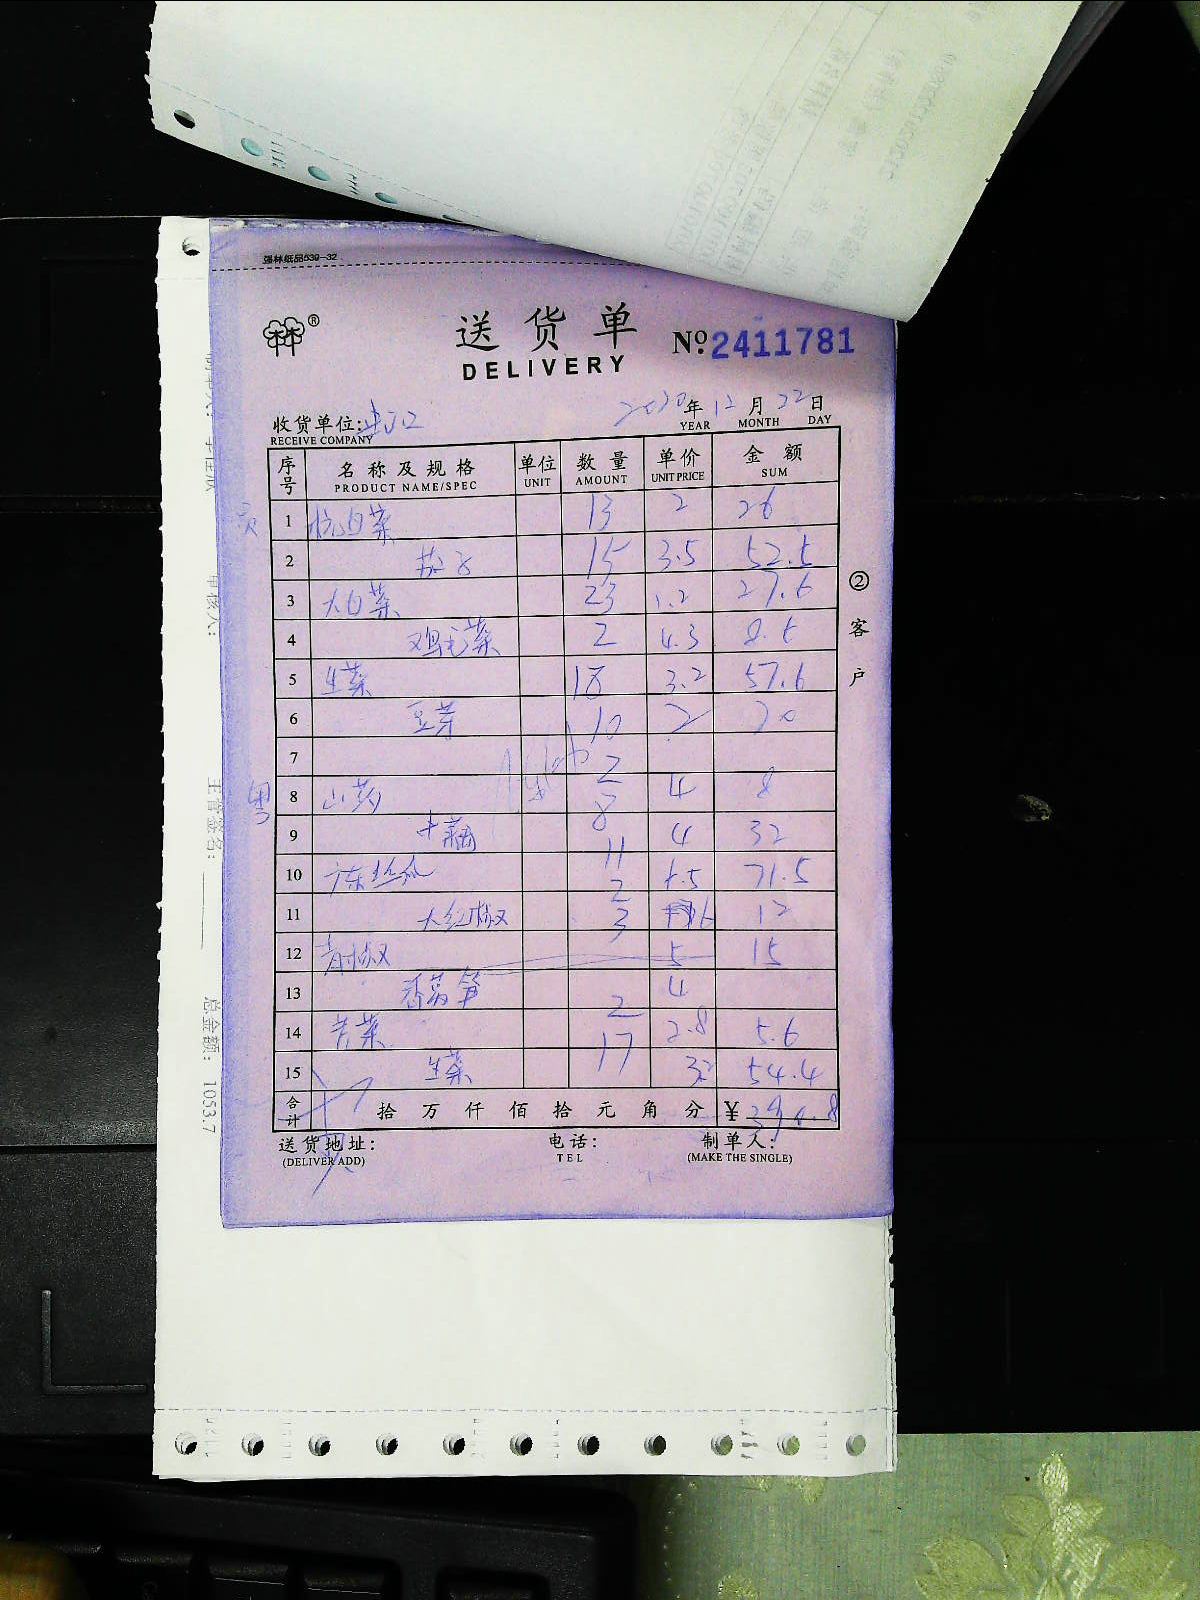 强林纸品539-32
®
送货单
DELIVERY
No. 2411781
2020年12月22日
YEAR MONTH DAY
收货单位:
RECEIVE COMPANY
序号 名称及规格 单位 数量 单价 金额
PRODUCT NAME/SPEC UNIT AMOUNT UNIT PRICE SUM
1 杭白菜 13 2 26
2 15 3.5 52.5
3 大白菜 23 1.2 27.6
4 鸡毛菜 2 4.3 8.6
5 生菜 18 3.2 57.6
6 豆芽 10 2 20
7 2
8 山药 8 4 8
9 11 4 32
10 广东丝瓜 2 6.5 71.5
11 大红椒 3 6 12
12 青椒 5 15
13 2 4
14 苦菜 17 2.8 5.6
15 生菜 32 54.4
合计 拾万仟佰拾元角分 ¥
送货地址: 电话: 制单人:
(DELIVER ADD) TEL (MAKE THE SINGLE)
②客户
审核人:
主管签名:
总金额: 1053.7